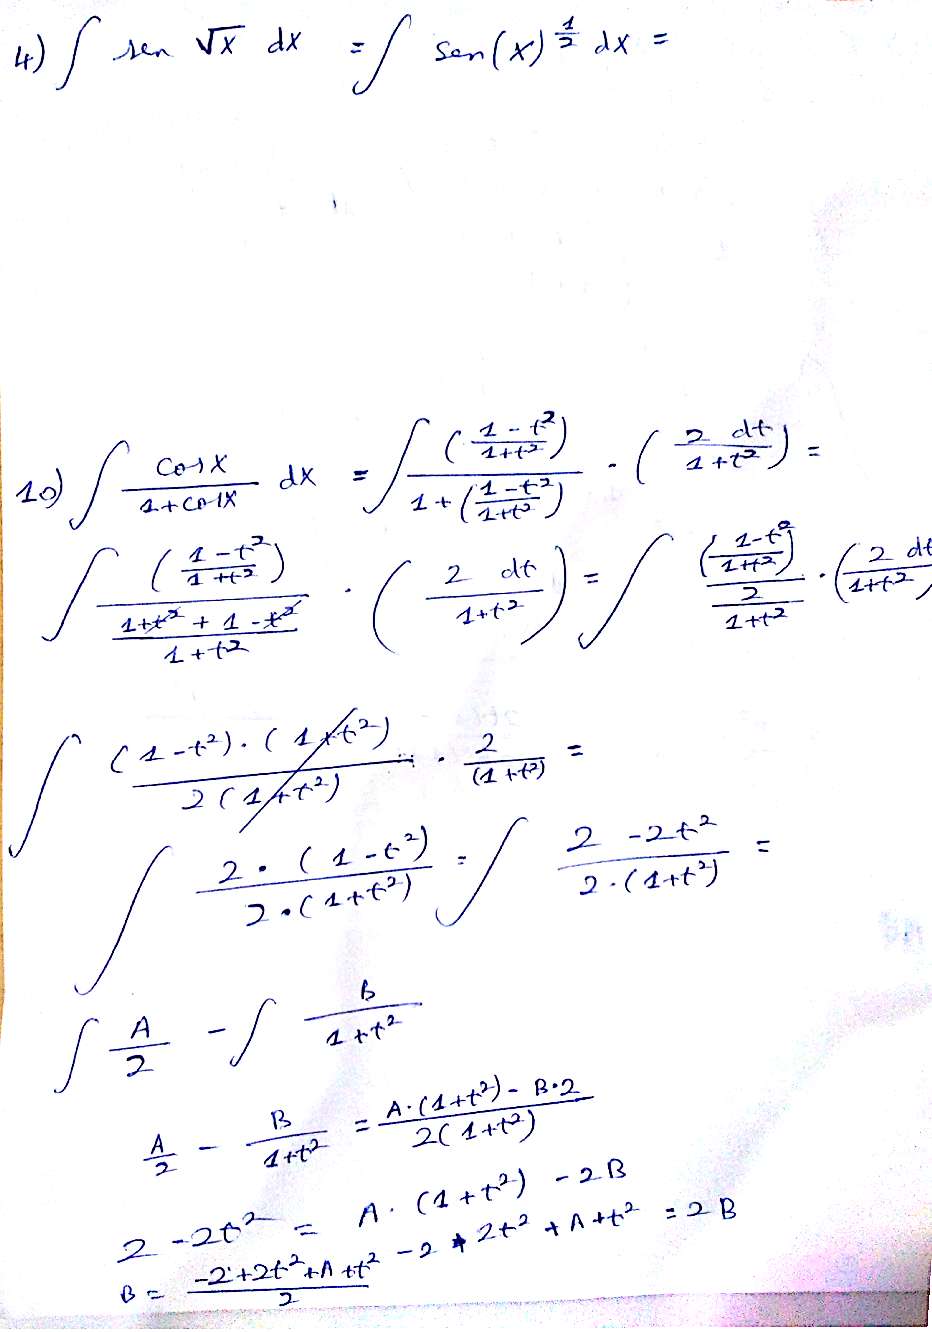 4) ∫ sen √x dx = ∫ sen(x)^(1/2) dx =
10) ∫ cosx/(1+cosx) dx = ∫ ((1-t²)/(1+t²))/(1+((1-t²)/(1+t²))) · (2 dt/(1+t²)) =
∫ ((1-t²)/(1+t²))/((1+t²+1-t²)/(1+t²)) · (2 dt/(1+t²)) = ∫ ((1-t²)/(1+t²))/(2/(1+t²)) · (2 dt/(1+t²))
∫ (1-t²)·(1+t²)/(2(1+t²)) · 2/(1+t²) =
∫ 2·(1-t²)/(2·(1+t²)) = ∫ (2-2t²)/(2·(1+t²)) =
∫ A/2 - ∫ B/(1+t²)
A/2 - B/(1+t²) = (A·(1+t²)-B·2)/(2(1+t²))
2-2t² = A·(1+t²)-2B
B = (-2+2t²+A+t²)/2 -2+2t²+A+t² = 2B